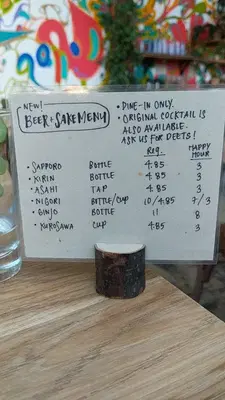 NEW!
BEER + SAKE MENU
• DINE-IN ONLY.
• ORIGINAL COCKTAIL IS ALSO AVAILABLE.
ASK US FOR DEETS!
REG. HAPPY HOUR
• SAPPORO BOTTLE 4.85 3
• KIRIN BOTTLE 4.85 3
• ASAHI TAP 4.85 3
• NIGORI BOTTLE/CUP 10/4.85 7/3
• GINJO BOTTLE 11 8
• KUROSAWA CUP 4.85 3